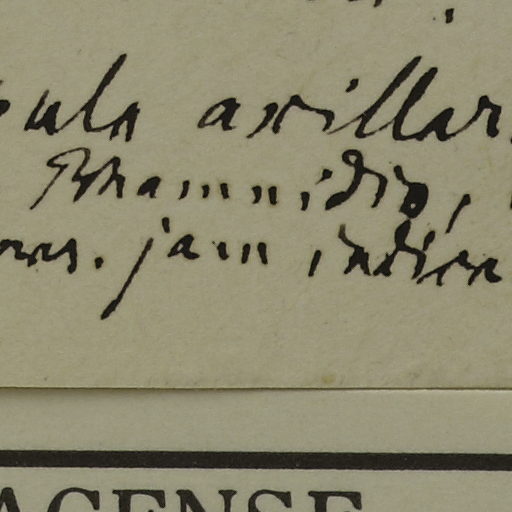 pula axillar
Rhamnidis,
jam indica
AGENSE